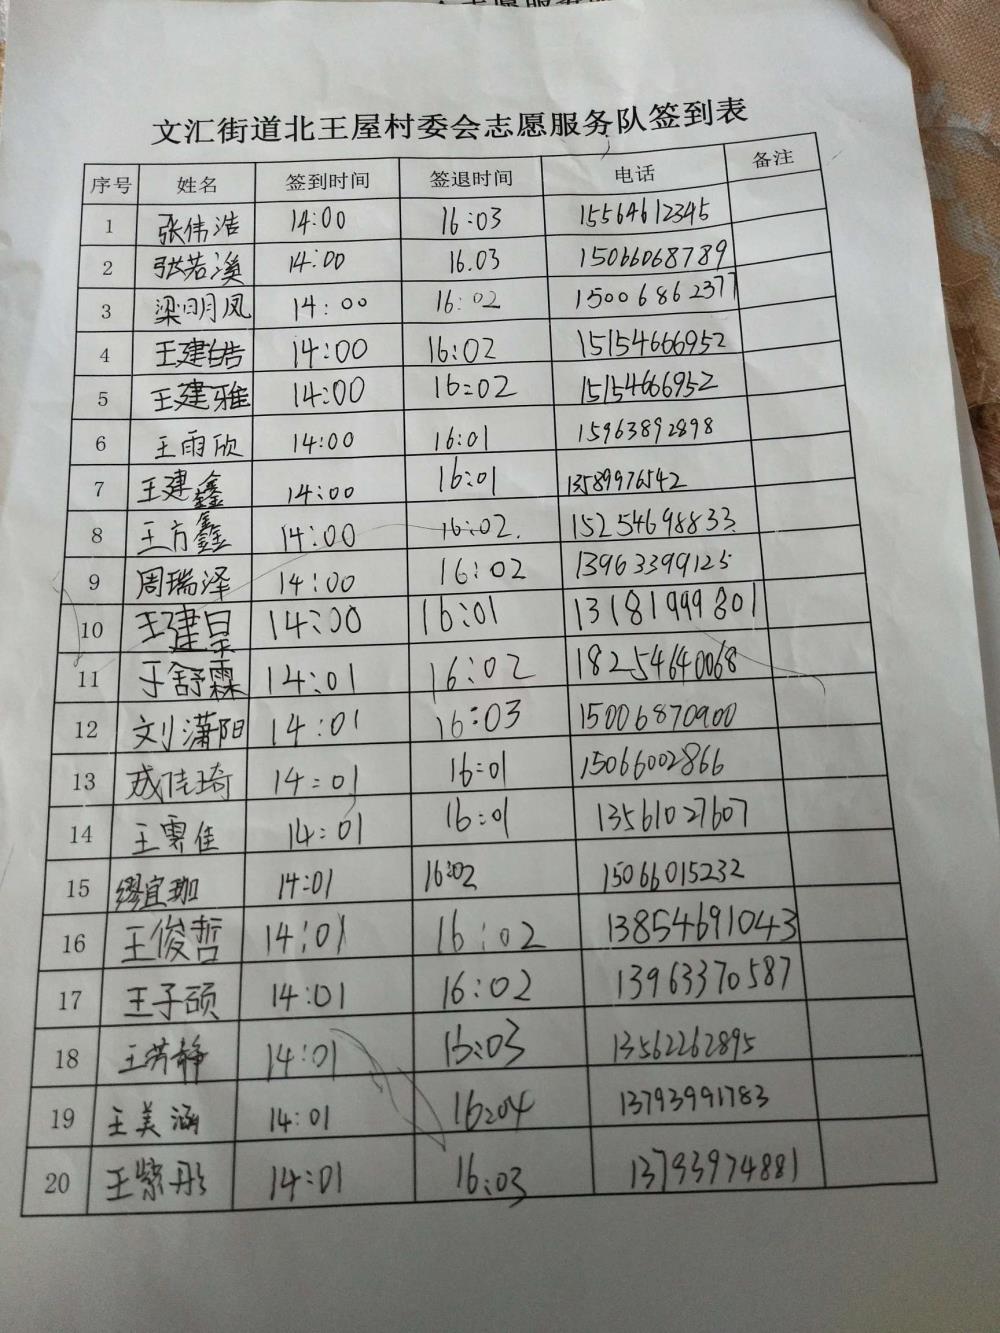 文汇街道北王屋村委会志愿服务队签到表
序号 姓名 签到时间 签退时间 电话 备注
1 张伟浩 14:00 16:03 15564612345
2 张若溪 14:00 16.03 15066068789
3 梁明凤 14:00 16:02 15006862377
4 王建皓 14:00 16:02 15154666952
5 王建雅 14:00 16:02 15154666952
6 王雨欣 14:00 16:01 15963892898
7 王建鑫 14:00 16:01 13589976542
8 王方鑫 14:00 16:02. 15254698833
9 周瑞泽 14:00 16:02 13963399125
10 王建昊 14:00 16:01 13181999801
11 于舒霖 14:01 16:02 18254640068
12 刘潇阳 14:01 16:03 15006870900
13 成佳琦 14:01 16:01 15066002866
14 王雲佳 14:01 16:01 13561027607
15 缪宜珈 14:01 16:02 15066015232
16 王俊哲 14:01 16:02 13854691043
17 王子硕 14:01 16:02 13963370587
18 王芳静 14:01 16:03 13562262895
19 王美涵 14:01 16:04 13793991783
20 王紫彤 14:01 16:03 13793974881